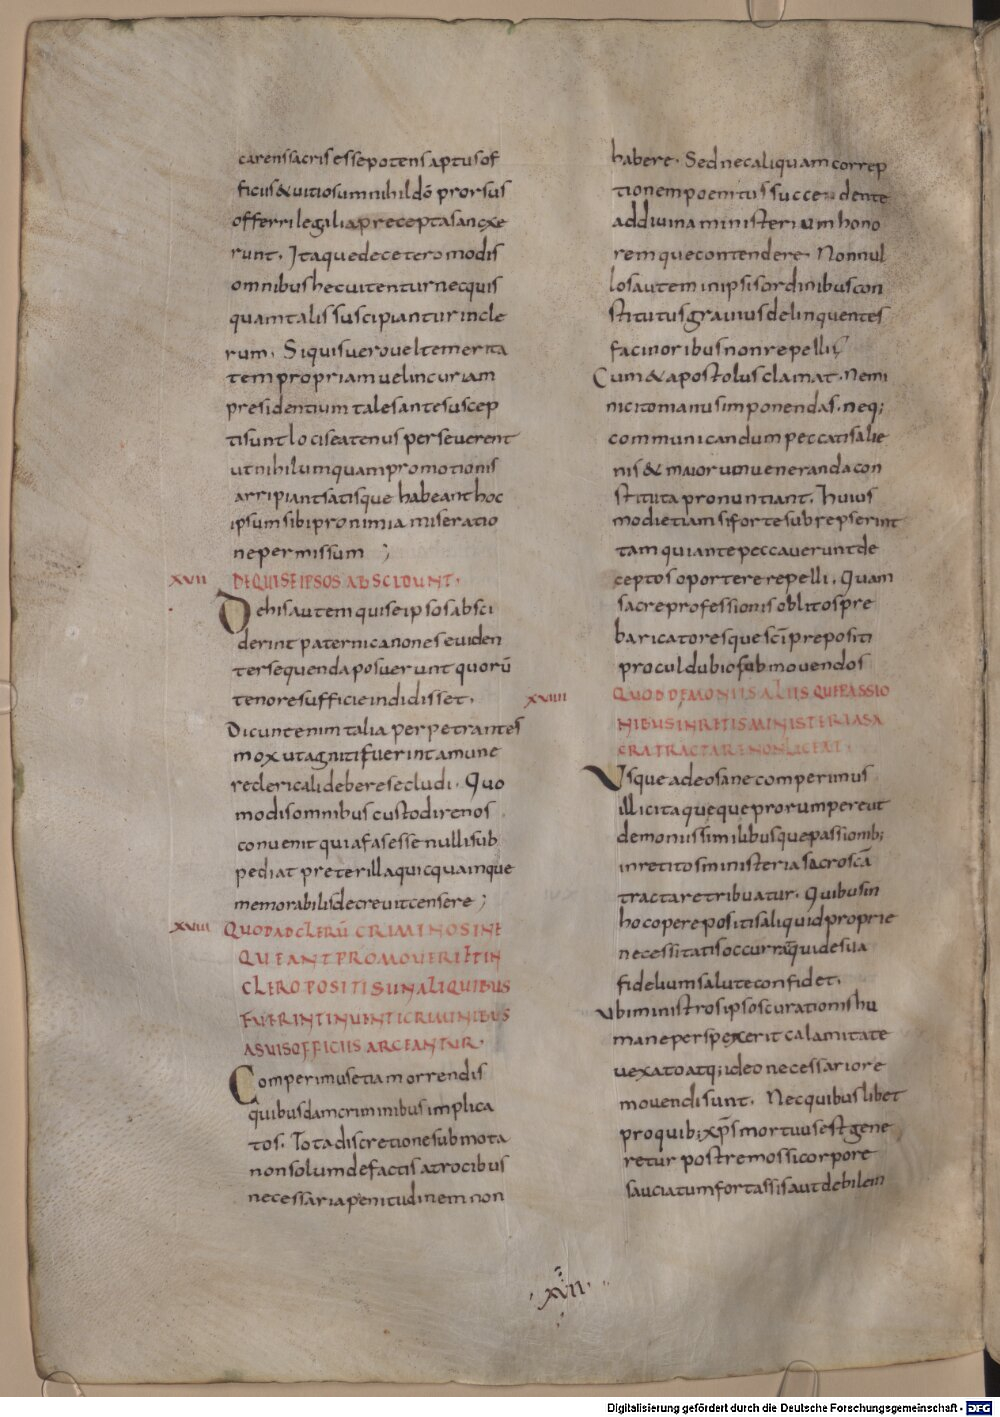 carens sacris esse potens aptus of
ficiis & uitiosum nihil dō prorsus
offerri legilia precepta sancxe
runt. Itaque decetero modis
omnibus hec uitentur nec quis
quam talis suscipiantur in cle
rum. Siquis uero uel temerita
tem propriam uel incuriam
presidentium tales ante suscep
ti sunt locis eatenus perseuerent
ut nihil umquam promotionis
arripiant satisque habeant hoc
ipsum sibi pro nimia miseratio
ne permissum ;
XVII DE QUI SE IPSOS ABSCIDUNT.
De his autem qui se ipsos absci
derint paterni canones euiden
ter sequenda posuerunt quorū
tenore sufficie indidisset.
Dicunt enim talia perpetrantes
mox ut agniti fuerint amune
re clericali debere secludi. Quo
modis omnibus custodire nos
conuenit quia fas esse nulli sub
pediat preter illa quicquamque
memorabilis decreuit censere ;
XVIII QUOD AD CLERŪ CRIMINOSI NE
QUEANT PROMOUERI ET IN
CLERO POSITI SI IN ALIQUIBUS
FUERINT INUENTI CRIMINIBUS
A SUIS OFFICIIS ARCEANTUR.
Comperimus etiam orrendis
quibusdam criminibus implica
tos. Tota discretione submota
non solum de factis atrocibus
necessaria penitudinem non
habere. Sed nec aliquam correp
tionem poenitus succedente
ad diuina ministerium hono
remque contendere. Nonnul
los autem in ipsis ordinibus con
stitutus grauius delinquentes
facinoribus non repelli
Cum & apostolus clamat. Nemi
ni cito manus imponendas. neq;
communicandum peccatis alie
nis & maiorum ueneranda con
stituta pronuntiant. Huius
modi etiam si forte subrepserint
tam qui ante peccauerunt de
ceptos oportere repelli. Quam
sacre professionis oblitos pre
baricatoresque sc̄i prepositi
procul dubio submouendos
XVIIII QUOD DEMONIIS ALIIS QUE PASSIO
NIBUS INRETIS MINISTERIA SA
CRA TRACTARE NON LICEAT.
Usque adeo sane comperimus
illicita queque prorumpere ut
demoniis similibusque passionib;
inretitos ministeria sacroscā
tractare tribuatur. Quibus in
hoc opere positis aliquid proprie
necessitatis occurrat quide sua
fidelium salute confidet.
Ubi ministros ipsos curationis hu
mane perspexerit calamitate
uexato atq; ideo necessario re
mouendi sunt. Nec quibuslibet
pro quib; xp̄s mortuus est gene
retur postremo si corpore
sauciatum fortassis aut debilem
.XVII.
Digitalisierung gefördert durch die Deutsche Forschungsgemeinschaft - DFG